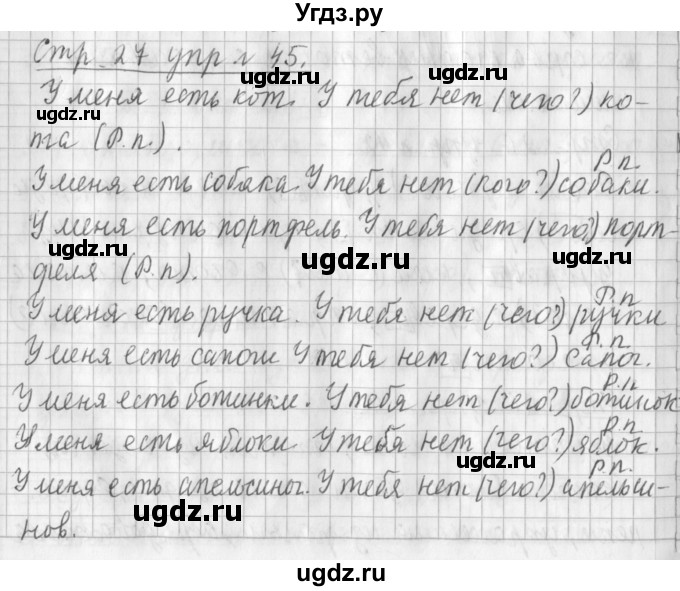 Угдз.ру
Стр. 27 упр № 45.
ugdz.ru
ugdz.ru
У меня есть кот. У тебя нет (чего?) ко-
ugdz.ru
та (Р.п.).
Р.п.
У меня есть собака. У тебя нет (кого?) собаки.
У меня есть портфель. У тебя нет (чего?) порт-
ugdz.ru
ugdz.ru
ugdz.ru
феля (Р.п).
Р.п
У меня есть ручка. У тебя нет (чего?) ручки
Р.п
У меня есть сапоги У тебя нет (чего?) сапог.
ugdz.ru
ugdz.ru
Р.п.
У меня есть ботинки. У тебя нет (чего?) ботинок
Р.п
У меня есть яблоки У тебя нет (чего?) яблок.
ugdz.ru
Р.п.
У меня есть апельсины. У тебя нет (чего?) апельси-
ugdz.ru
ugdz.ru
нов.
ugdz.ru